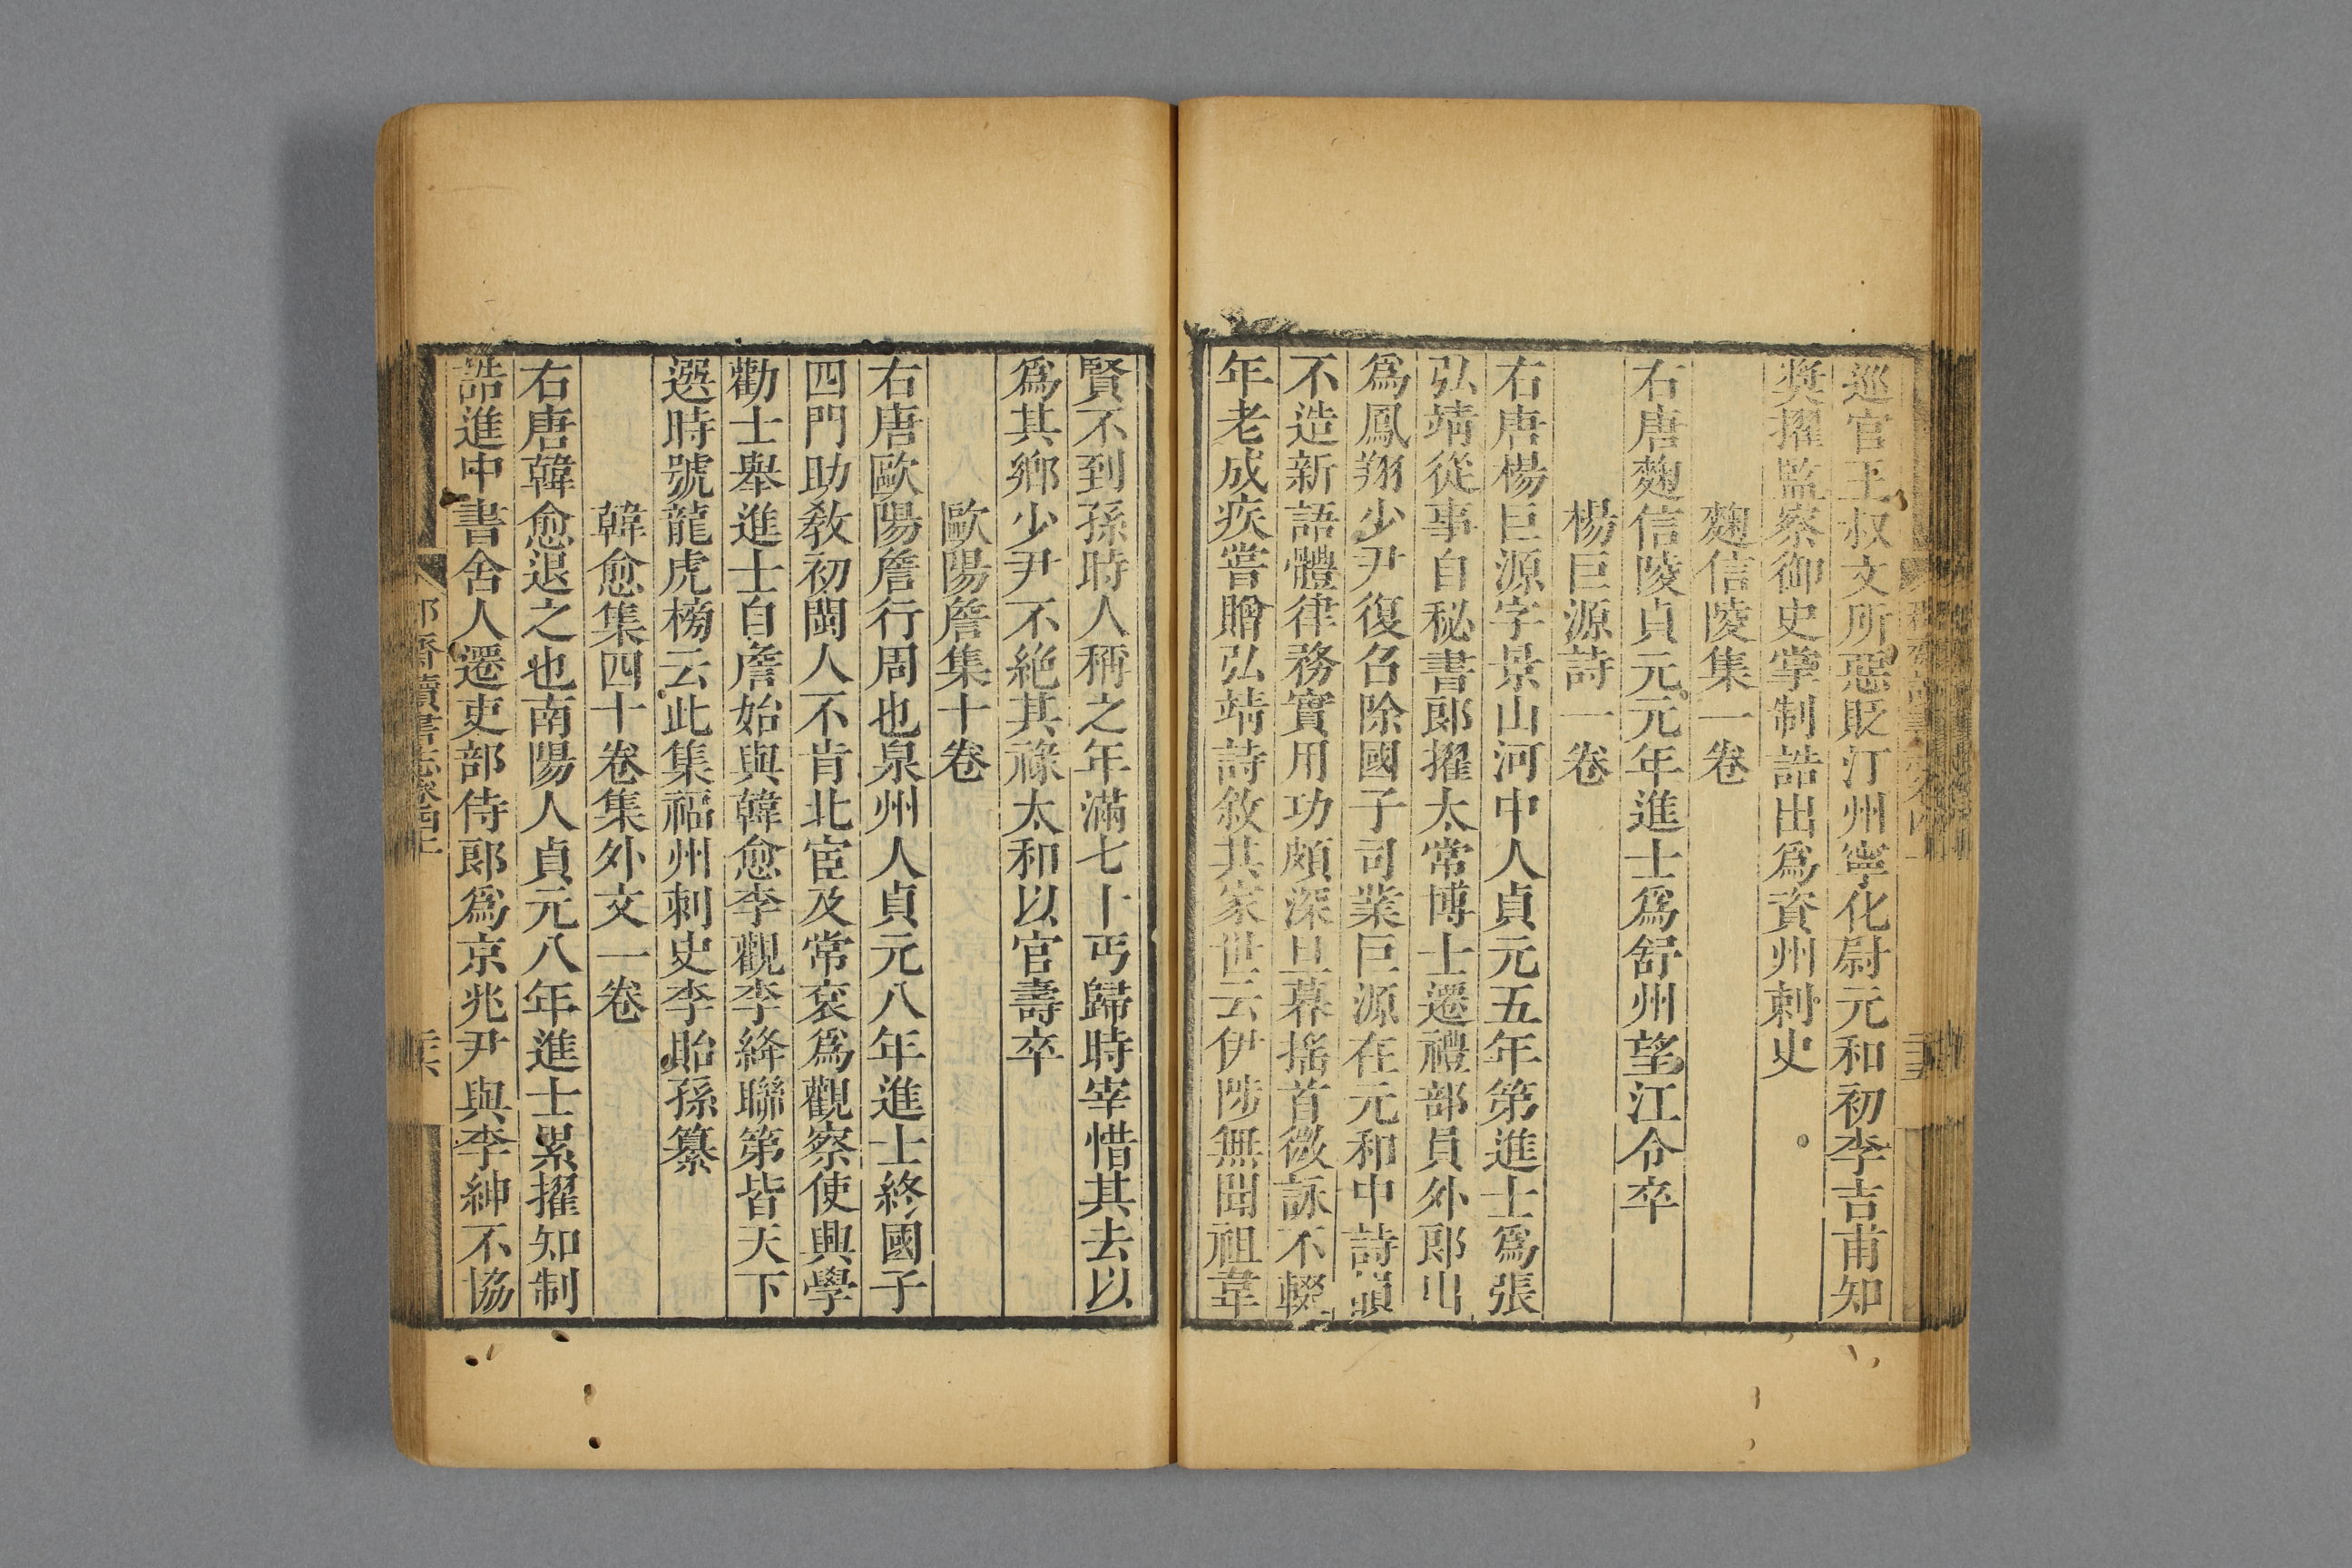 巡官王叔文所惡貶汀州寧化尉元和初李吉甫知
奬擢監察御史掌制誥出爲資州刺史
麴信陵集一卷
右唐麴信陵貞元元年進士爲舒州望江令卒
楊巨源詩一卷
右唐楊巨源字景山河中人貞元五年第進士爲張
弘靖從事自秘書郎擢太常博士遷禮部員外郎出
爲鳳翔少尹復召除國子司業巨源在元和中詩韻
不造新語體律務實用功頗深旦暮搖首微詠不輟
年老成疾嘗贈弘靖詩敘其家世云伊陟無聞祖韋
賢不到孫時人稱之年滿七十丐歸時宰惜其去以
爲其鄉少尹不絶其祿太和以官壽卒
歐陽詹集十卷
右唐歐陽詹行周也泉州人貞元八年進士終國子
四門助敎初閩人不肯北宦及常衮爲觀察使興學
勸士舉進士自詹始與韓愈李觀李絳聯第皆天下
選時號龍虎榜云此集福州刺史李貽孫纂
韓愈集四十卷集外文一卷
右唐韓愈退之也南陽人貞元八年進士累擢知制
誥進中書舍人遷吏部侍郎爲京兆尹與李紳不協
郡齋讀書志卷四上